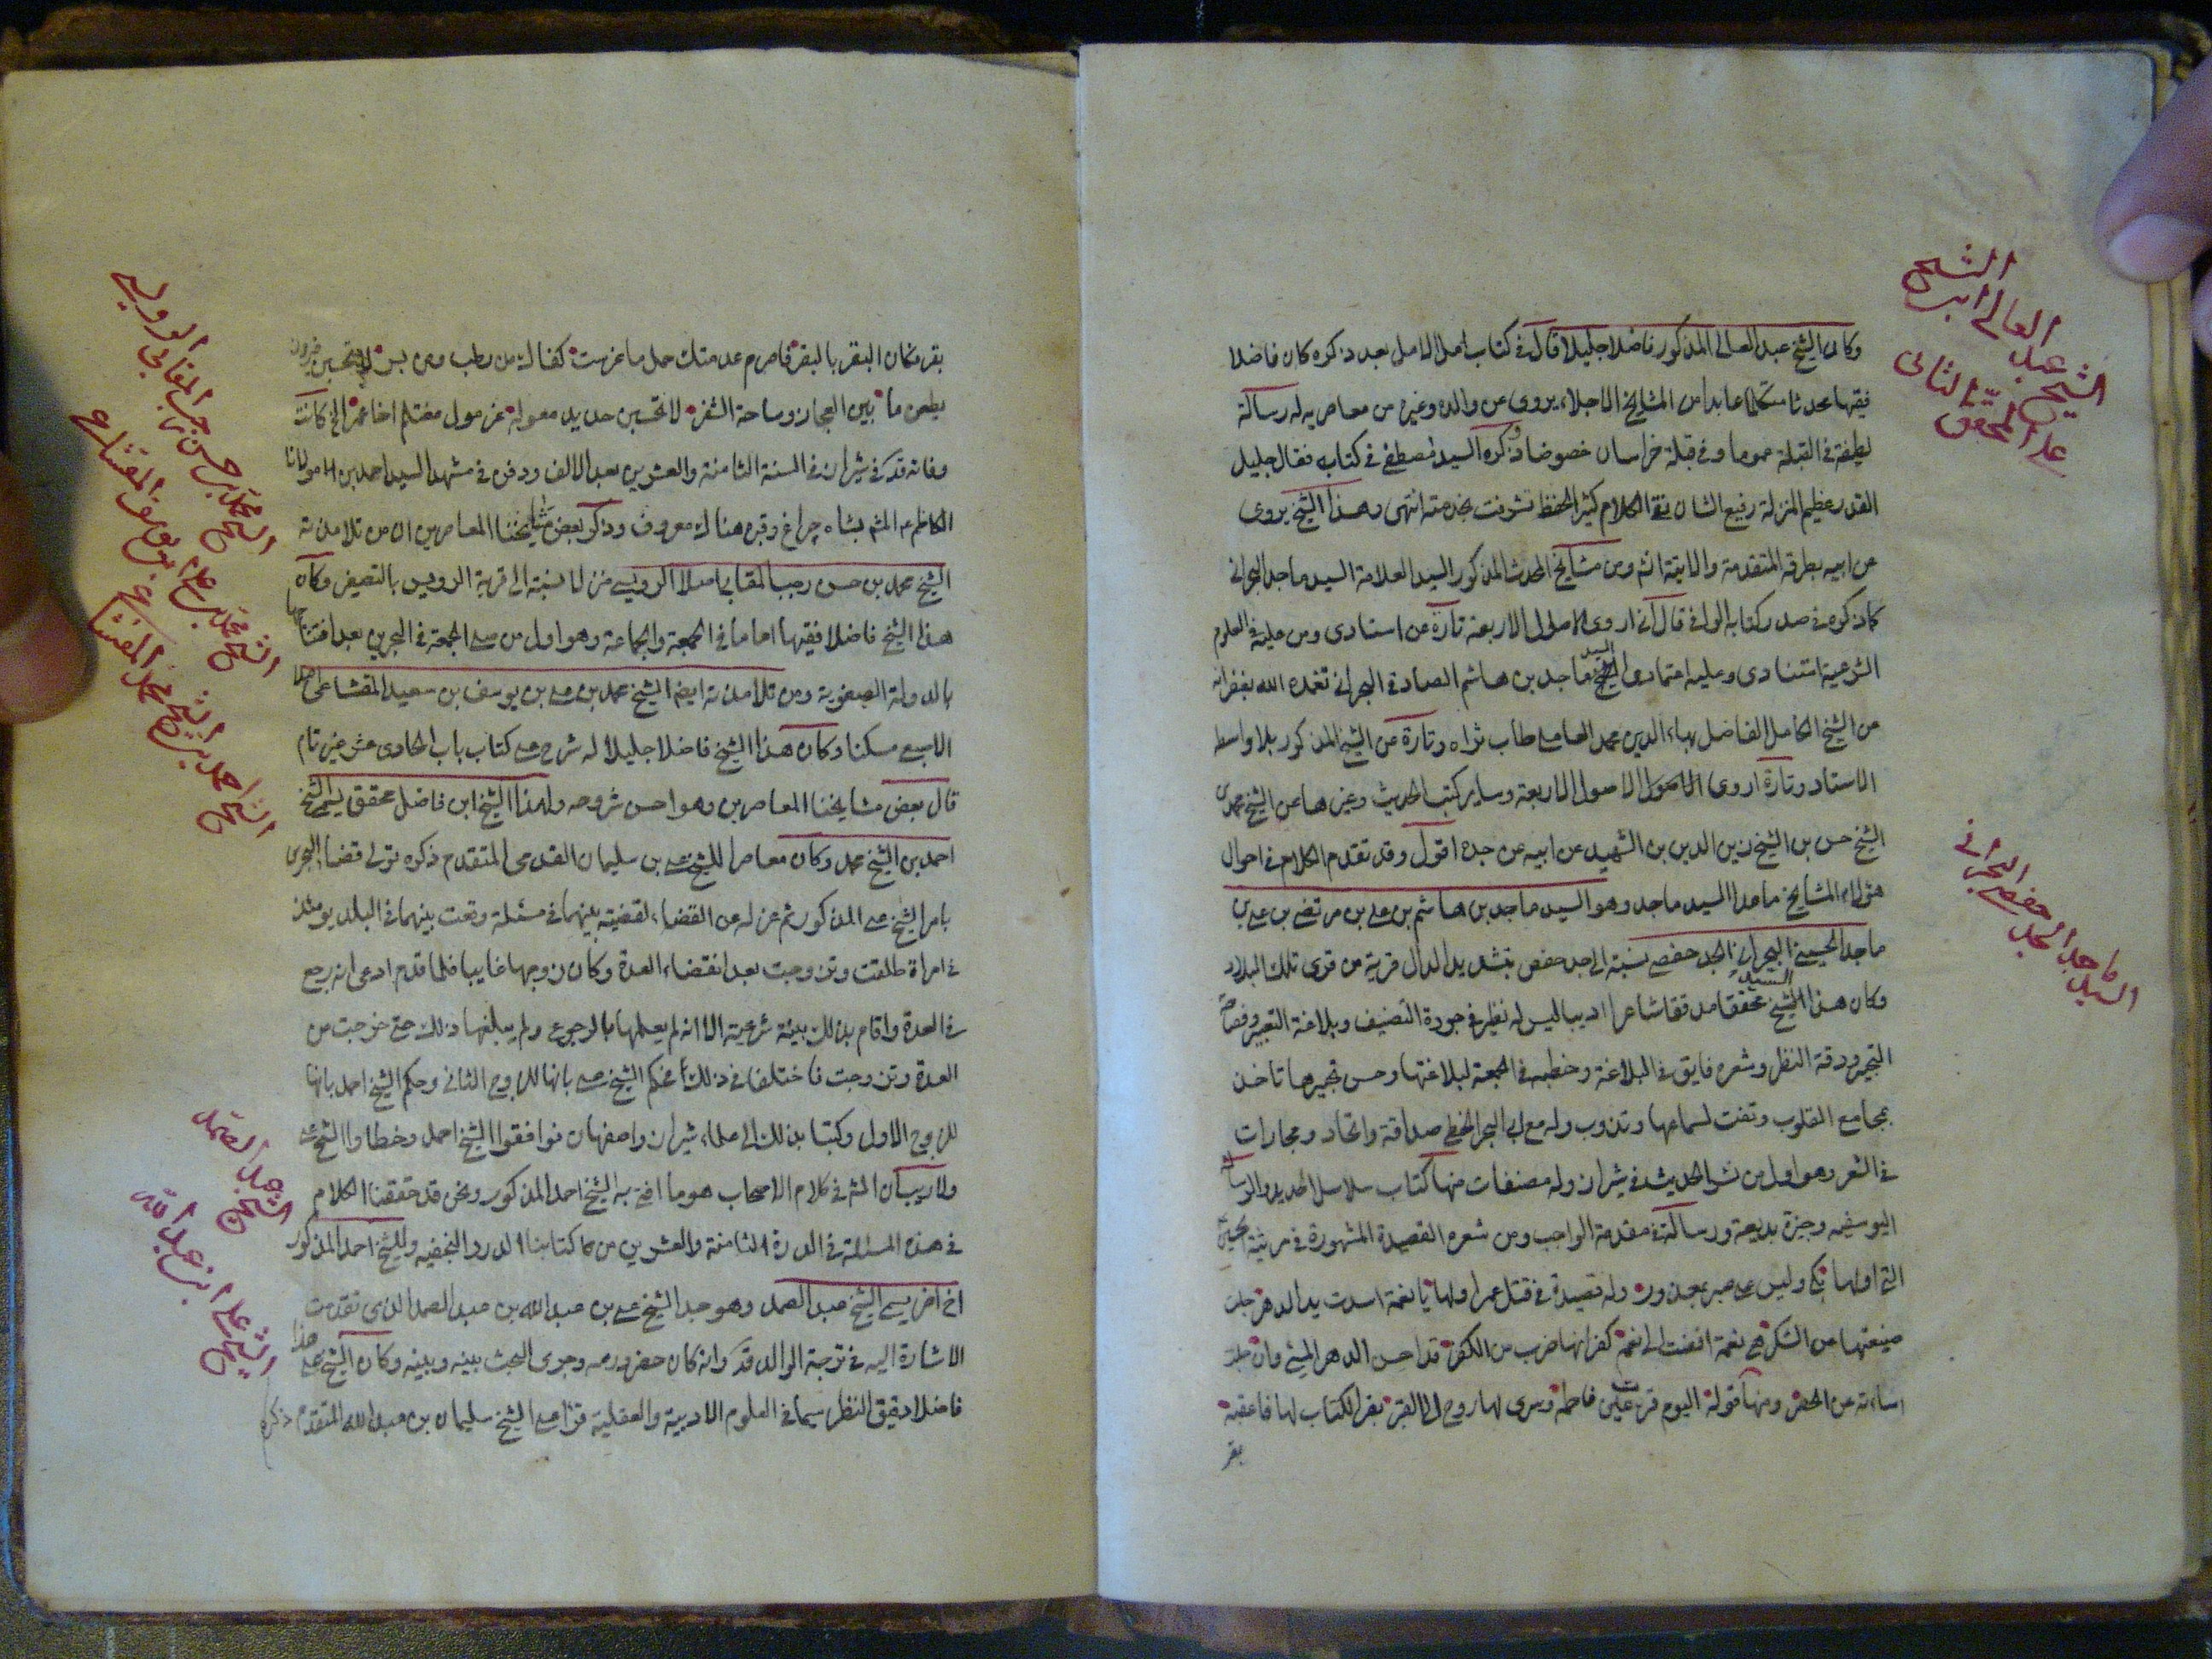 الشيخ عبد العالي ابن الشيخ
علي المحقق الثاني
وكان الشيخ عبد العالي المذكور فاضلا جليلا قال في كتاب امل الامل بعد ذكره كان فاضلا
فقيها محدثا متكلما عابدا من المشايخ الاجلاء يروي عن والده وغيره من معاصريه له رسالة
لطيفة في القبلة عموما وفي قبلة خراسان خصوصا وذكره السيد مصطفى في كتابه فقال جليل
القدر عظيم المنزلة رفيع الشان نقي الكلام كثير الحفظ تشرفت بخدمته انتهى وهذا الشيخ يروي
عن ابيه بطرقه المتقدمة والاتية ومن مشايخ المحدث المذكور السيد العلامة السيد ماجد البحراني
كما ذكره في صدر كتابه الوافي قال اني اروي الاصول الاربعة تارة عن استادي ومن عليه في العلوم
الشرعية استنادي وعليه اعتمادي السيد ماجد بن هاشم الصادقي البحراني تغمده الله بغفرانه
عن الشيخ الكامل الفاضل بهاء الدين محمد العاملي طاب ثراه وتارة عن الشيخ المذكور بلا واسطه
الاستاد وتارة اروي الاصول الاربعة وساير كتب الحديث وغيرها عن الشيخ محمد بن
الشيخ حسن بن الشيخ زين الدين بن الشهيد عن ابيه عن جده اقول وقد تقدم الكلام في احوال
هؤلاء المشايخ ما عدا السيد ماجد وهو السيد ماجد بن هاشم بن علي بن مرتضى بن علي بن
السيد ماجد البحراني الجد حفصي
ماجد الحسيني البحراني الجد حفصي نسبة الى جد حفص بتشديد الدال قرية من قرى تلك البلاد
وكان هذا السيد محققا مدققا شاعرا اديبا ليس له نظير في جودة التصنيف وبلاغة التعبير وفصاحة
التحبير ودقة النظر وشعره فايق في البلاغة وخطبه في الجمعة لبلاغتها وحسن تحبيرها تاخذ
بمجامع القلوب وتفت لسماعها وتذوب وله مع ابي البحر الخطي صداقة واتحاد ومجارات
في الشعر وهو اول من نشر الحديث في شيراز وله مصنفات منها كتاب سلاسل الحديد والرسالة
اليوسفيه وجيزة بديعة ورسالة في مقدمة الواجب ومن شعره القصيدة المشهورة في مرثية الحسين
التي اولها بكى وليس على صبر بمعذور وله قصيدة في قتل عمر اولها يا نعمة اسدت يد الدهر جلت
صنيعتها عن الشكر هي نعمة افضت الى نعم كفرانها ضرب من الكفر قد احسن الدهر المسيء وان جلت
اساءته عن الحصر ومنها قوله اليوم قرت عين فاطمة وسرى لها روح الى القبر بقر الكتاب لها فاعقبه
بقر
بقر فكان البقر بالبقر فاصرم عدمتك حمل ما غرست كفاك من رطب ومن بسر لا تحسبن
يطعن ما بين العجان وساحة الثغر لا تحسبن حديد معوله عن مول مغتلم اخا عمر الخ كانت
وفاته قده في شيراز في السنة الثامنة والعشرين بعد الالف ودفن في مشهد السيد احمد بن مولانا
الكاظم ع المشهور بشاه چراغ وقبره هناك معروف وذكر بعض مشايخنا المعاصرين ان من تلامذته
الشيخ محمد بن حسن بن رجب المقابي الرويسي
الشيخ محمد بن حسن رجب المقابي اصلا الرويسي منزلا نسبة الى قرية الرويس بالتصغير وكان
هذا الشيخ فاضلا فقيها اماما في الجمعة والجماعة وهو اول من صلى الجمعة في البحرين بعد افتتاحها
الشيخ محمد بن علي بن يوسف المقشاعي
بالدولة الصفوية ومن تلامذته ايضا الشيخ محمد بن علي بن يوسف بن سعيد المقشاعي اصلا
الاصبعي مسكنا وكان هذا الشيخ فاضلا جليلا له شرح على كتاب باب الحادي عشر غير تام
الشيخ احمد بن الشيخ محمد المقشاعي
قال بعض مشايخنا المعاصرين وهو احسن شروحه ولهذا الشيخ ابن فاضل محقق يسمى الشيخ
احمد بن الشيخ محمد وكان معاصرا للشيخ علي بن سليمان القدمي المتقدم ذكره تولى قضاء البحرين
بامر الشيخ علي المذكور ثم عزله عن القضاء لقضية بينهما في مسئلة وقعت بينهما في البلد يومئذ
في امراة طلقت وتزوجت بعد انقضاء العدة وكان زوجها غايبا فلما قدم ادعى انه رجع
في العدة واقام بذلك بينة شرعية الا انه لم يعلمها بالرجوع ولم يبلغها ذلك حتى خرجت من
العدة وتزوجت فاختلفا في ذلك فحكم الشيخ علي بانها للزوج الثاني وحكم الشيخ احمد بانها
للزوج الاول وكتبا بذلك الى علماء شيراز واصفهان فوافقوا الشيخ احمد وخطاوا الشيخ علي
ولا ريب ان المشهور في كلام الاصحاب هو ما افتى به الشيخ احمد المذكور ونحن قد حققنا الكلام
في هذه المسئلة في الدرة الثامنة والعشرين من كتابنا الدرر النجفيه وللشيخ احمد المذكور
الشيخ عبد الصمد
اخ اخر يسمى الشيخ عبد الصمد وهو جد الشيخ علي بن عبد الله بن عبد الصمد الذي تقدمت
الشيخ علي ابن عبد الله
الاشارة اليه في ترجمة الوالد قده وانه كان حضر درسه وجرى البحث بينه وبينه وكان الشيخ علي هذا
فاضلا دقيق النظر سيما في العلوم الادبية والعقلية قرا على الشيخ سليمان بن عبد الله المتقدم ذكره